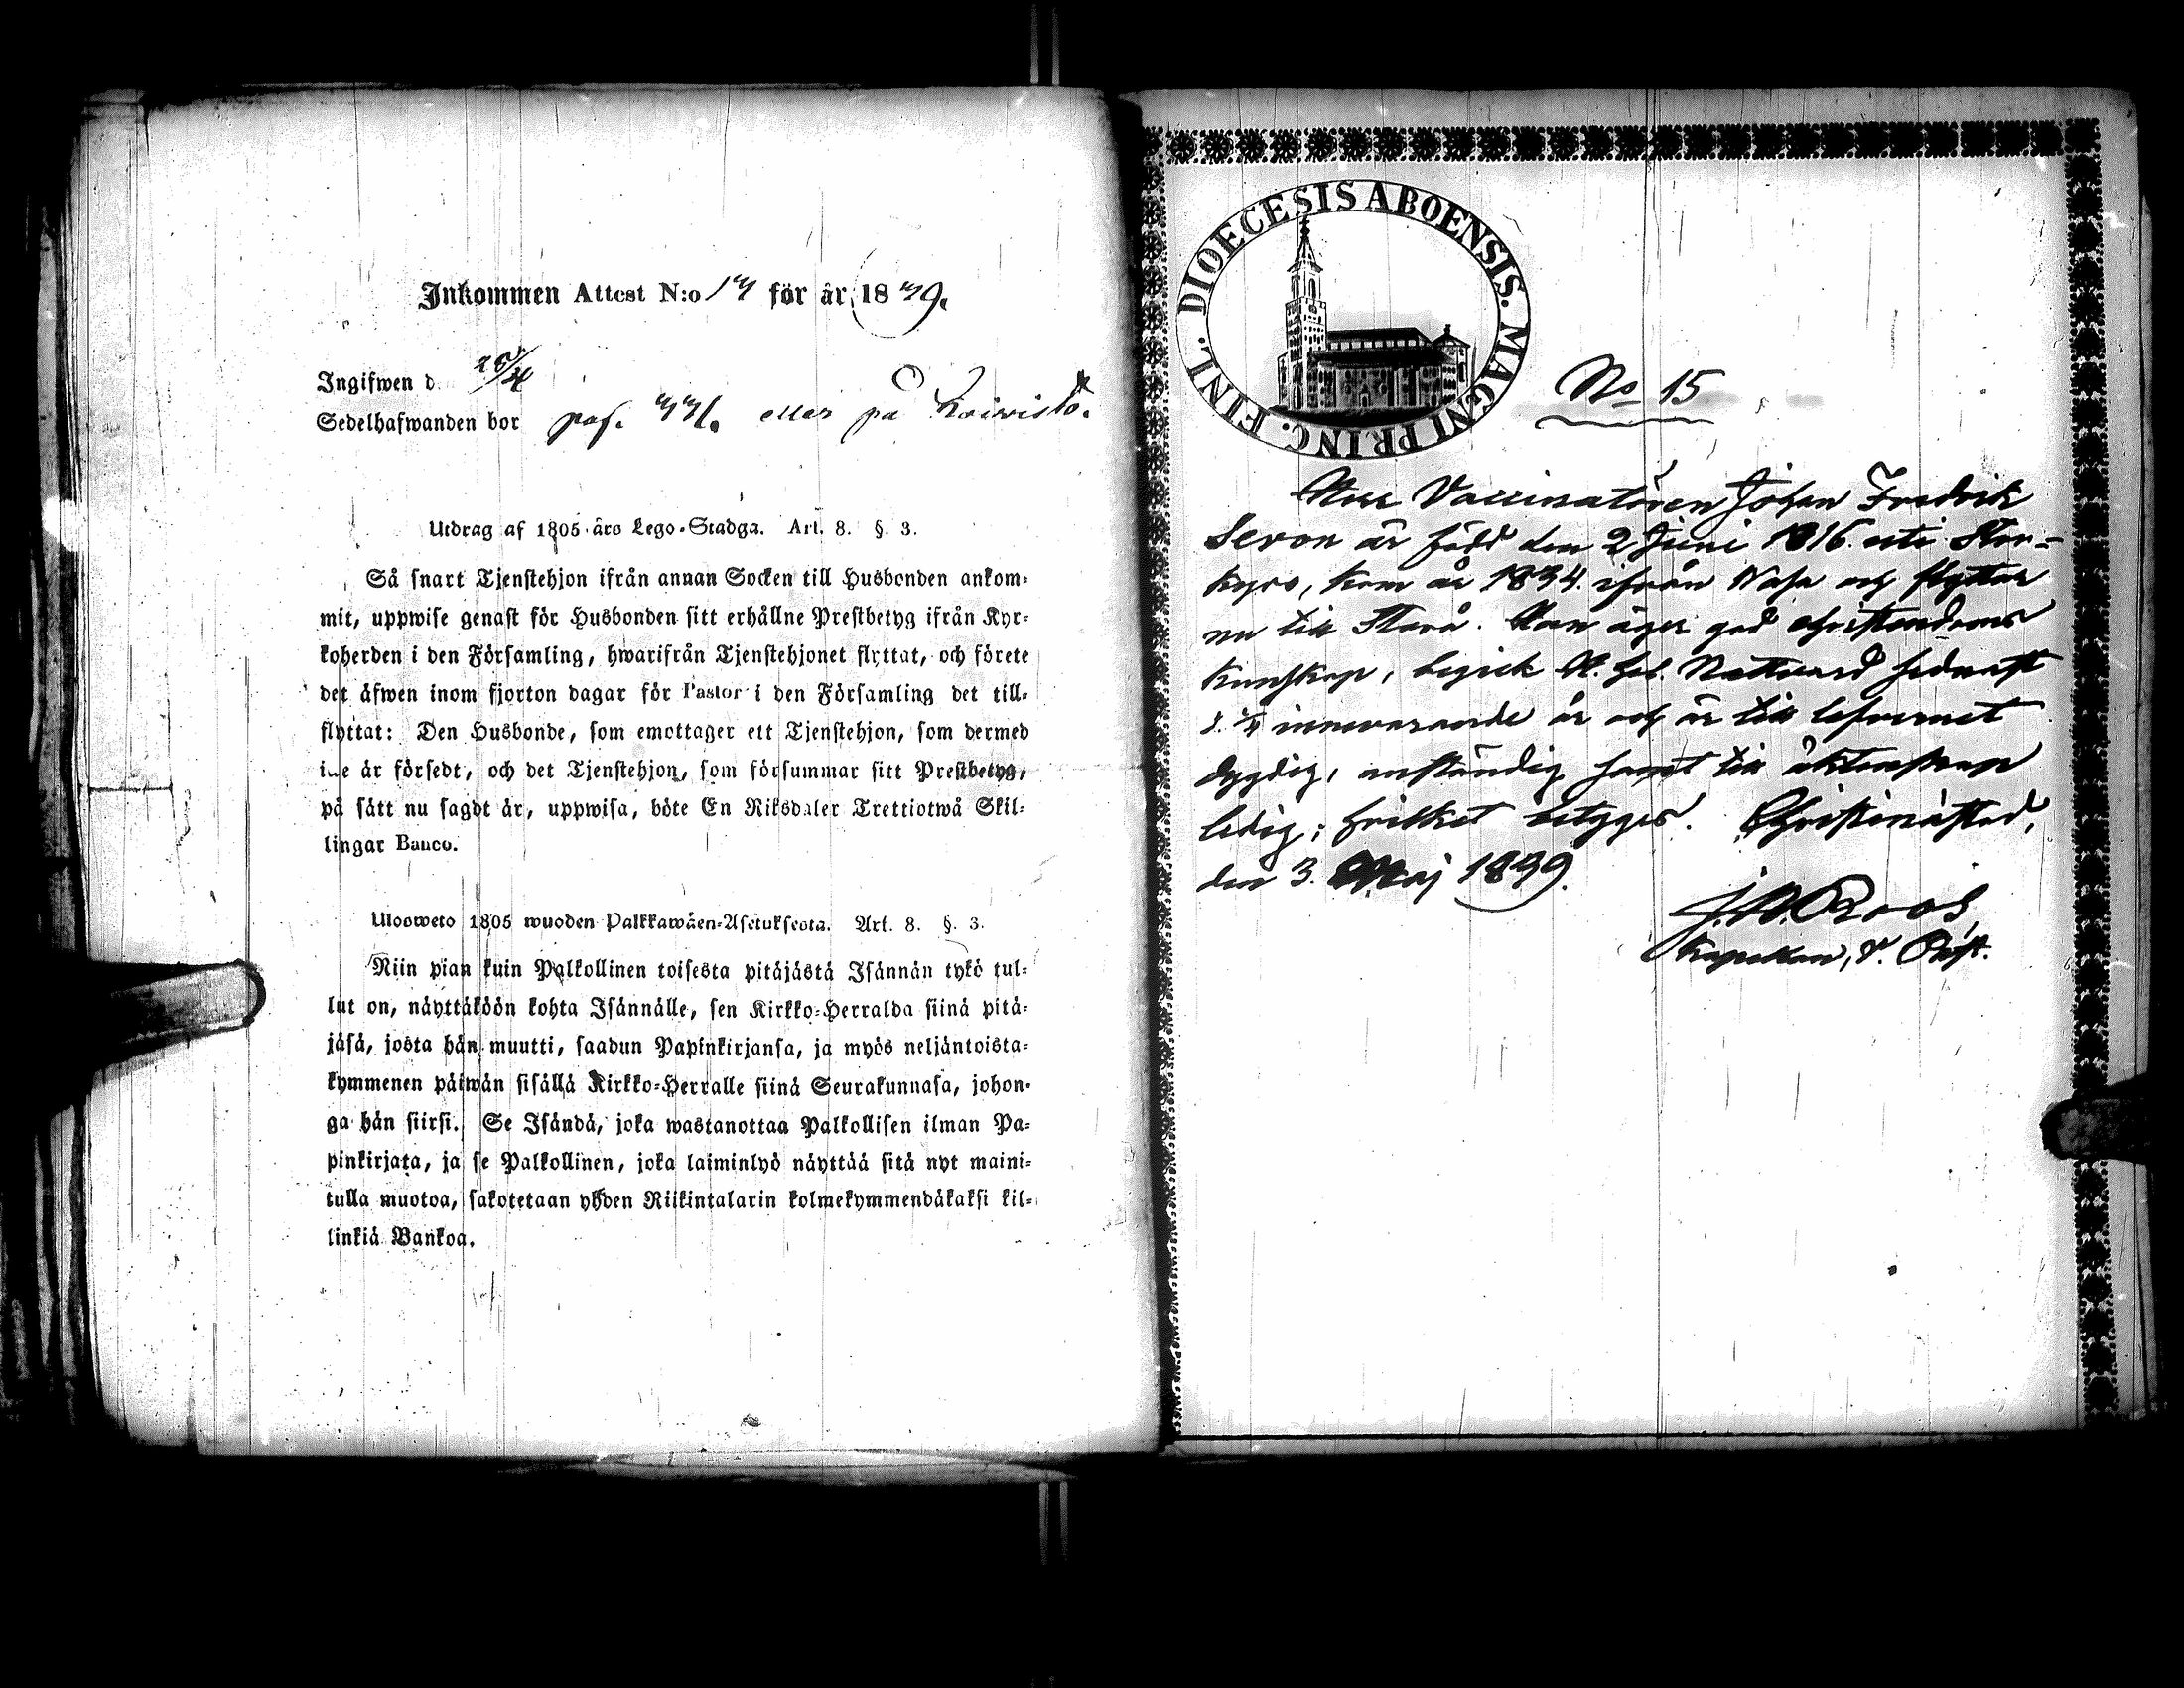 Inkommen Attest N:o 17 för år 1839.
Ingifwen d. 25/4
Sedelhafwanden bor pag. 331. eller på Koivisto.
Utdrag af 1805 års Lego-Stadga. Art. 8. §. 3.
Så snart Tjenstehjon ifrån annan Socken till Husbonden ankom-
mit, uppwise genast för Husbonden sitt erhållne Prestbetyg ifrån Kyr-
koherden i den Församling, hwarifrån Tjenstehjonet flyttat, och förete
det äfwen inom fjorton dagar för Pastor i den Församling det till-
flyttat: Den Husbonde, som emottager ett Tjenstehjon, som dermed
icke är försedt, och det Tjenstehjon, som försummar sitt Prestbetyg,
på sätt nu sagdt är, uppwisa, böte En Riksdaler Trettiotwå Skil-
lingar Banco.
Ulosweto 1805 wuoden Palkkawäen-Asetuksesta. Art. 8. §. 3.
Niin pian kuin Palkollinen toisesta pitäjästä Isännän tykö tul-
lut on, näyttäköön kohta Isännälle, sen Kirkko-Herralda siinä pitä-
jäsä, josta hän muutti, saadun Papinkirjansa, ja myös neljäntoista-
kymmenen päiwän sisällä Kirkko-Herralle siinä Seurakunnasa, johon-
ga hän siirsi. Se Isändä, joka wastanottaa Palkollisen ilman Pa-
pinkirjata, ja se Palkollinen, joka laiminlyö näyttää sitä nyt maini-
tulla muotoa, sakotetaan yhden Riikintalarin kolmekymmendäkaksi kil-
linkiä Bankoa.
DIOECESIS ABOENSIS. MAGNI PRINC. FINL.
No 15
Herr Vaccinatören Johan Fredrik
Seron är född den 2 Juni 1816 uti Stor-
kyro, kom år 1834 ifrån Wasa och flyttar
nu till Storå. Han äger god christendoms
kunskap, begick H. Hel. Nattvard sednast
d. innevarande år och är till lefvernet
dygdig, anständig samt till äktenskap
ledig; hvilket betygas. Christinæstad,
den 3. Maj 1839.
J. A. Roos
Kapellan, v. Past.